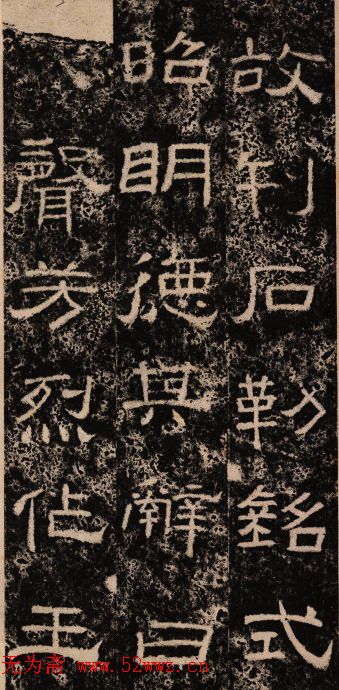 故刊石勒銘式
昭明德其辭曰
聲芳烈作王
无为斋 www.52wwz.cn